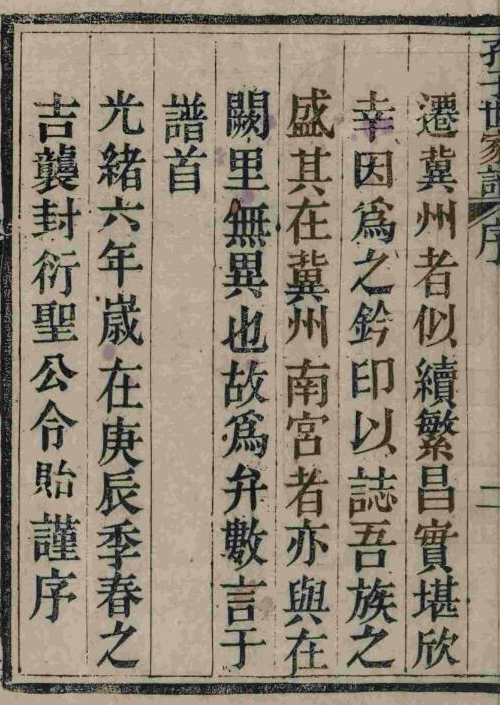 孔子世家譜 序 二
遷冀州者似續繁昌實堪欣
幸因爲之鈐印以誌吾族之
盛其在冀州南宮者亦與在
闕里無異也故爲弁數言于
譜首
光緒六年歲在庚辰季春之
吉襲封衍聖公令貽謹序